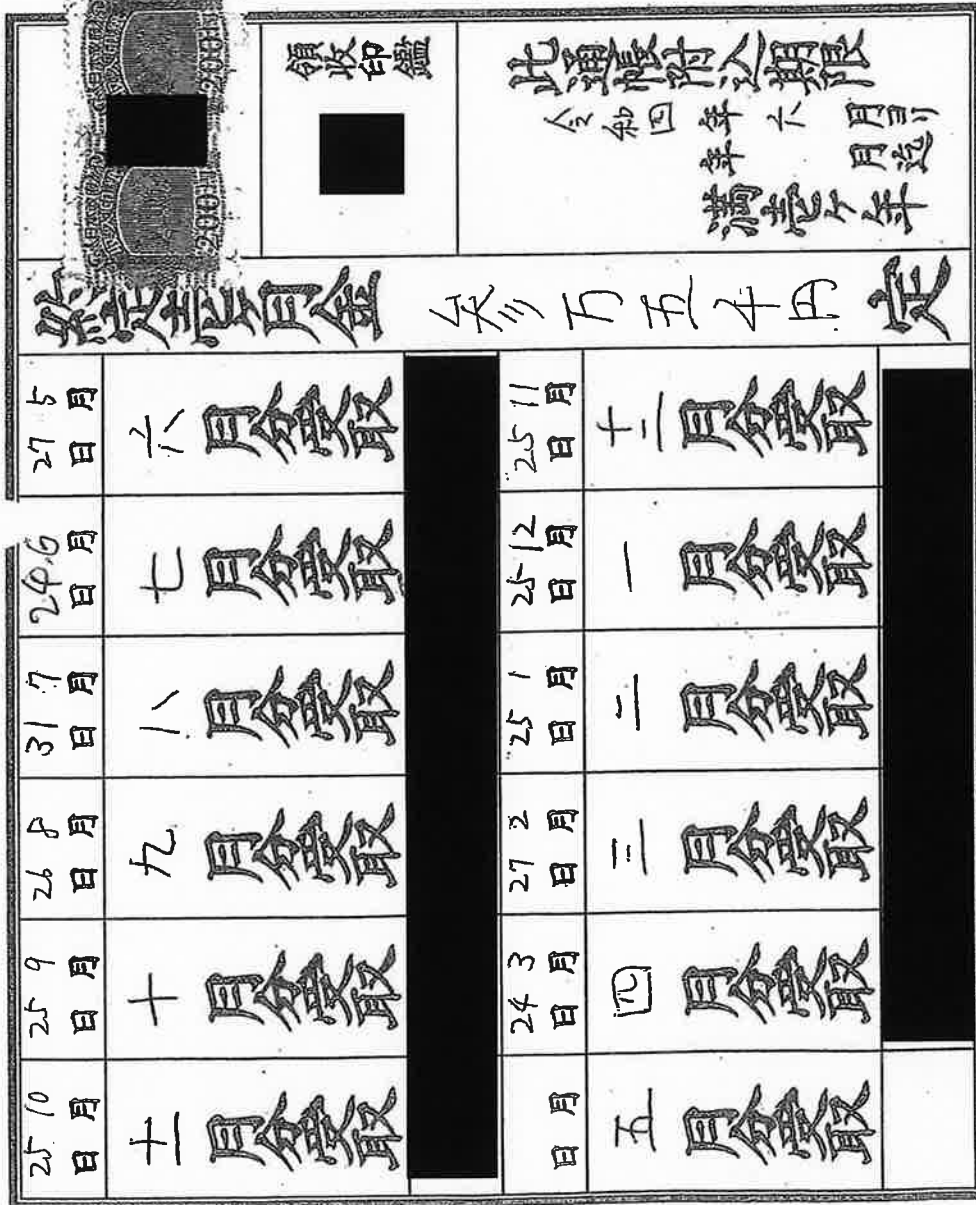 此通帳附込期限
令和四年六月ヨリ
年　月迄
満壱ケ年
領収印鑑
200円
200円
定
参万五千円
月金
5月27日
六月分受取
6月24日
七月分受取
7月31日
八月分受取
8月26日
九月分受取
9月25日
十月分受取
10月25日
十一月分受取
11月25日
十二月分受取
12月25日
一月分受取
1月25日
二月分受取
2月27日
三月分受取
3月24日
四月分受取
月　日
五月分受取